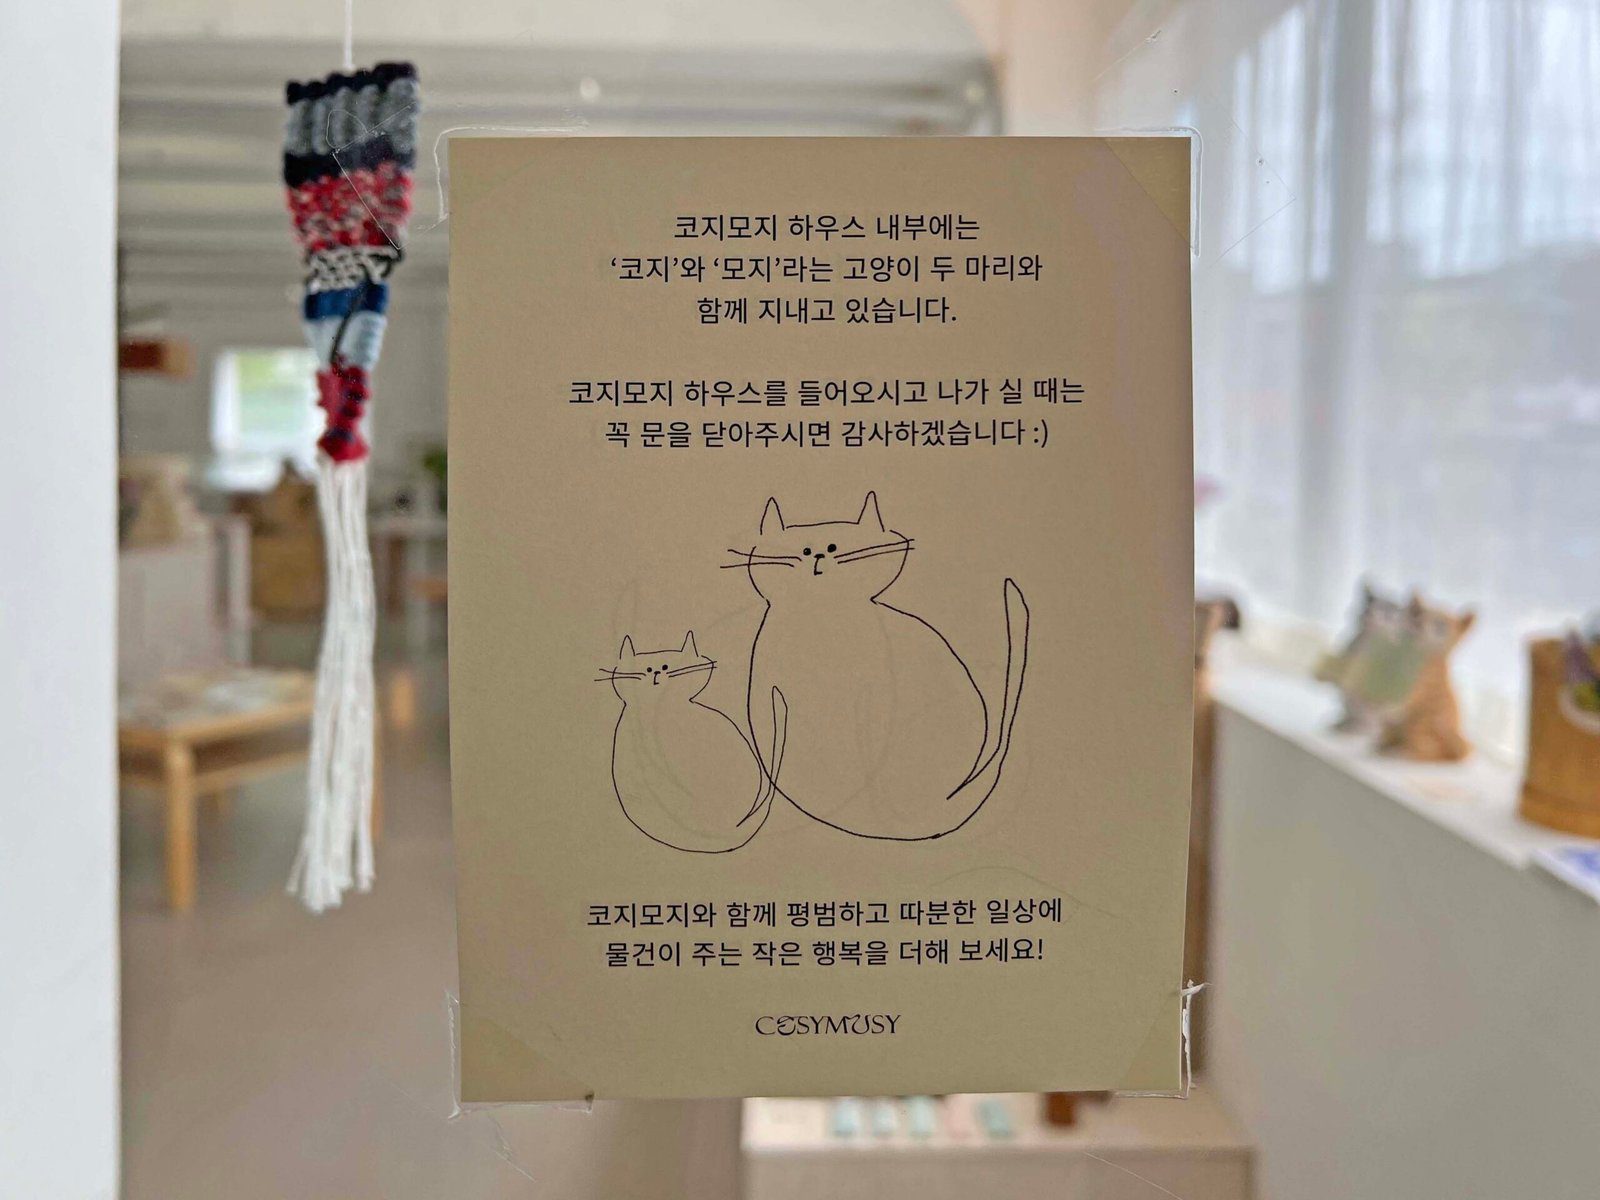 코지모지 하우스 내부에는
‘코지’와 ‘모지’라는 고양이 두 마리와
함께 지내고 있습니다.
코지모지 하우스를 들어오시고 나가 실 때는
꼭 문을 닫아주시면 감사하겠습니다 :)
코지모지와 함께 평범하고 따분한 일상에
물건이 주는 작은 행복을 더해 보세요!
COSYMUSY